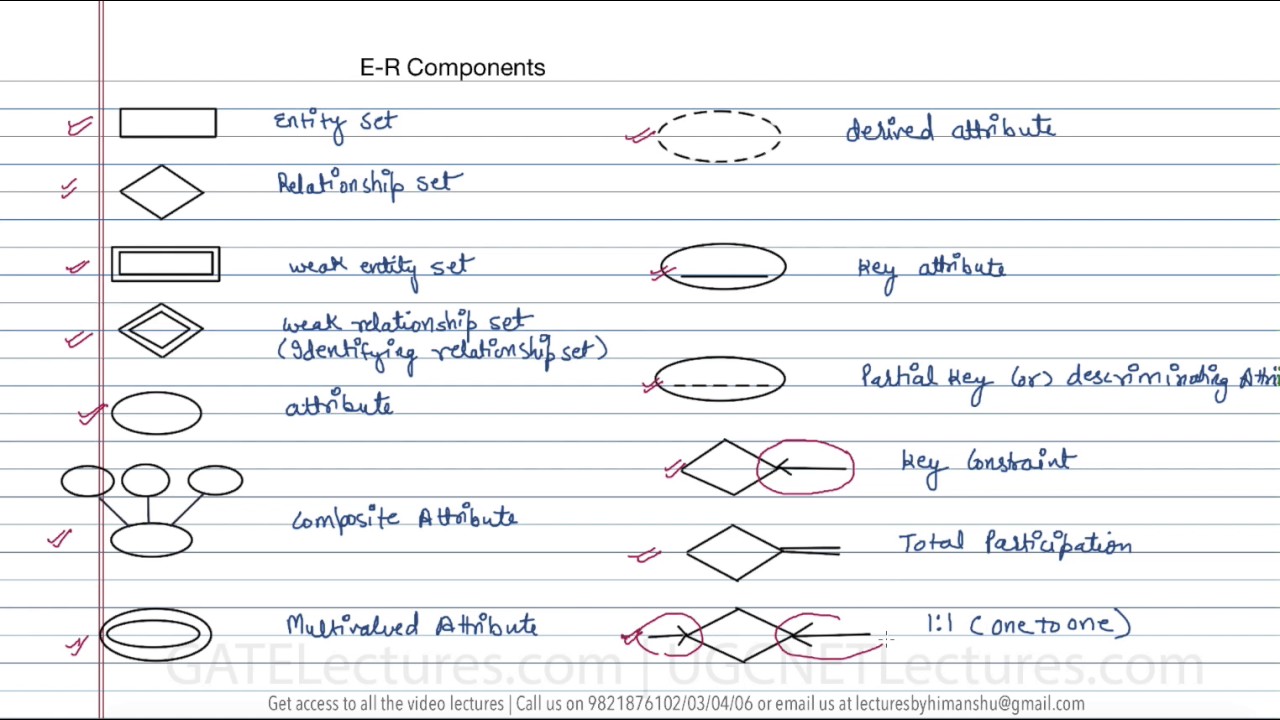 E-R Components
Entity set
Relationship set
weak entity set
weak relationship set
(Identifying relationship set)
attribute
Composite Attribute
Multivalued Attribute
derived attribute
Key attribute
Partial Key (or) descriminating Attri
Key Constraint
Total Participation
1:1 (one to one)
GATELectures.com | UGCNETLectures.com
Get access to all the video lectures | Call us on 9821876102/03/04/06 or email us at lecturesbyhimanshu@gmail.com